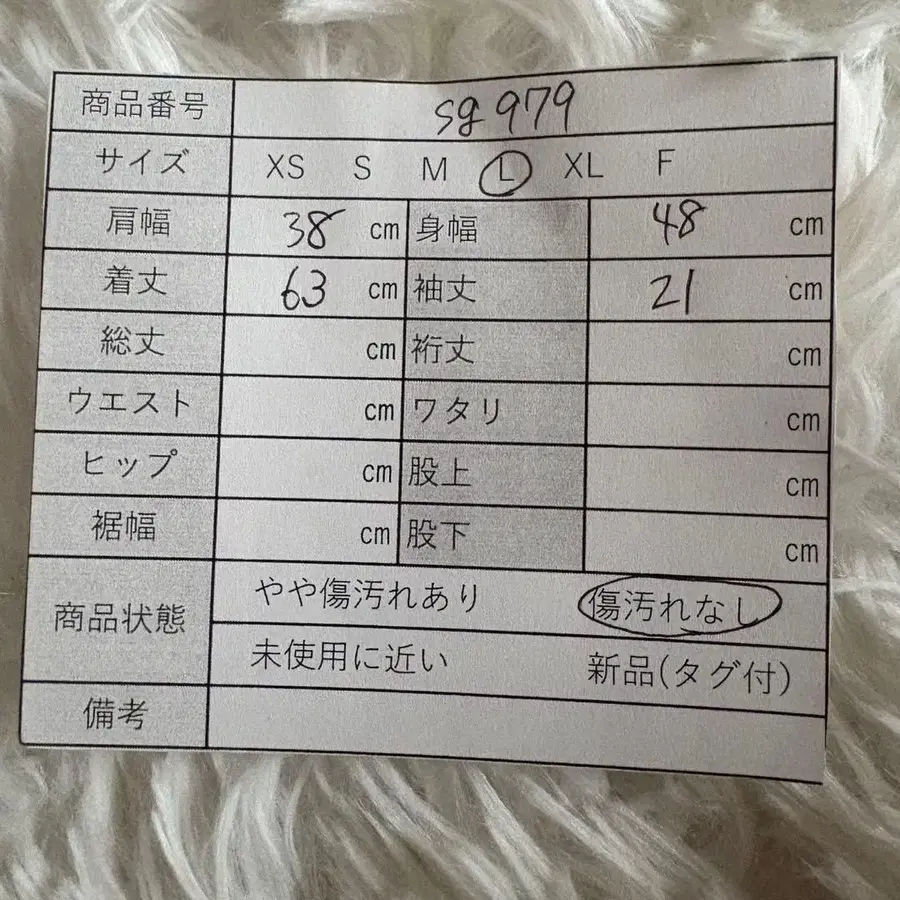 商品番号 sg979
サイズ XS S M L XL F
肩幅 38 cm 身幅 48 cm
着丈 63 cm 袖丈 21 cm
総丈 cm 裄丈 cm
ウエスト cm ワタリ cm
ヒップ cm 股上 cm
裾幅 cm 股下 cm
商品状態 やや傷汚れあり 傷汚れなし
未使用に近い 新品(タグ付)
備考